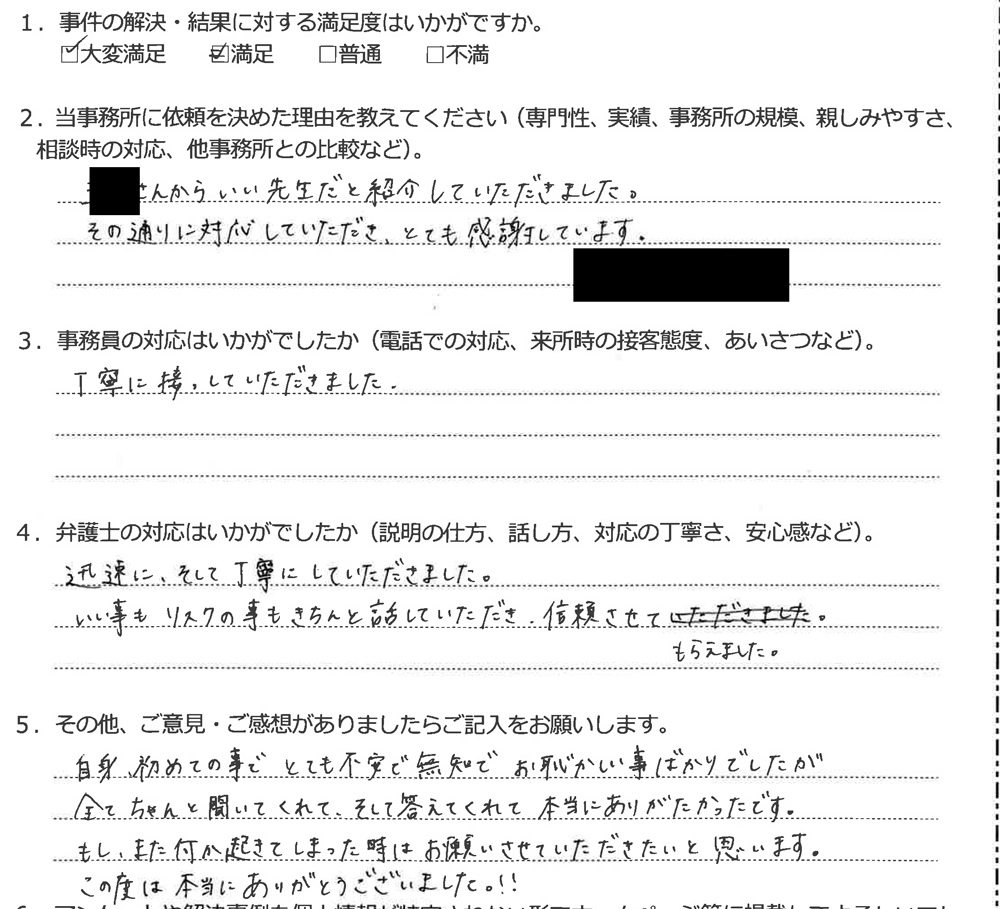 1. 事件の解決・結果に対する満足度はいかがですか。
☑大変満足 ☑満足 □普通 □不満
2. 当事務所に依頼を決めた理由を教えてください（専門性、実績、事務所の規模、親しみやすさ、
相談時の対応、他事務所との比較など）。
さんからいい先生だと紹介していただきました。
その通りに対応していただき、とても感謝しています。
3. 事務員の対応はいかがでしたか（電話での対応、来所時の接客態度、あいさつなど）。
丁寧に接っしていただきました.
4. 弁護士の対応はいかがでしたか（説明の仕方、話し方、対応の丁寧さ、安心感など）。
迅速に、そして丁寧にしていただきました。
いい事もリスクの事もきちんと話していただき、信頼させていただきました。
もらえました。
5. その他、ご意見・ご感想がありましたらご記入をお願いします。
自身、初めての事でとても不安で無知でお恥かしい事ばかりでしたが
全てちゃんと聞いてくれて、そして答えてくれて本当にありがたかったです。
もし、また何か起きてしまった時はお願いさせていただきたいと思います。
この度は本当にありがとうございました。!!